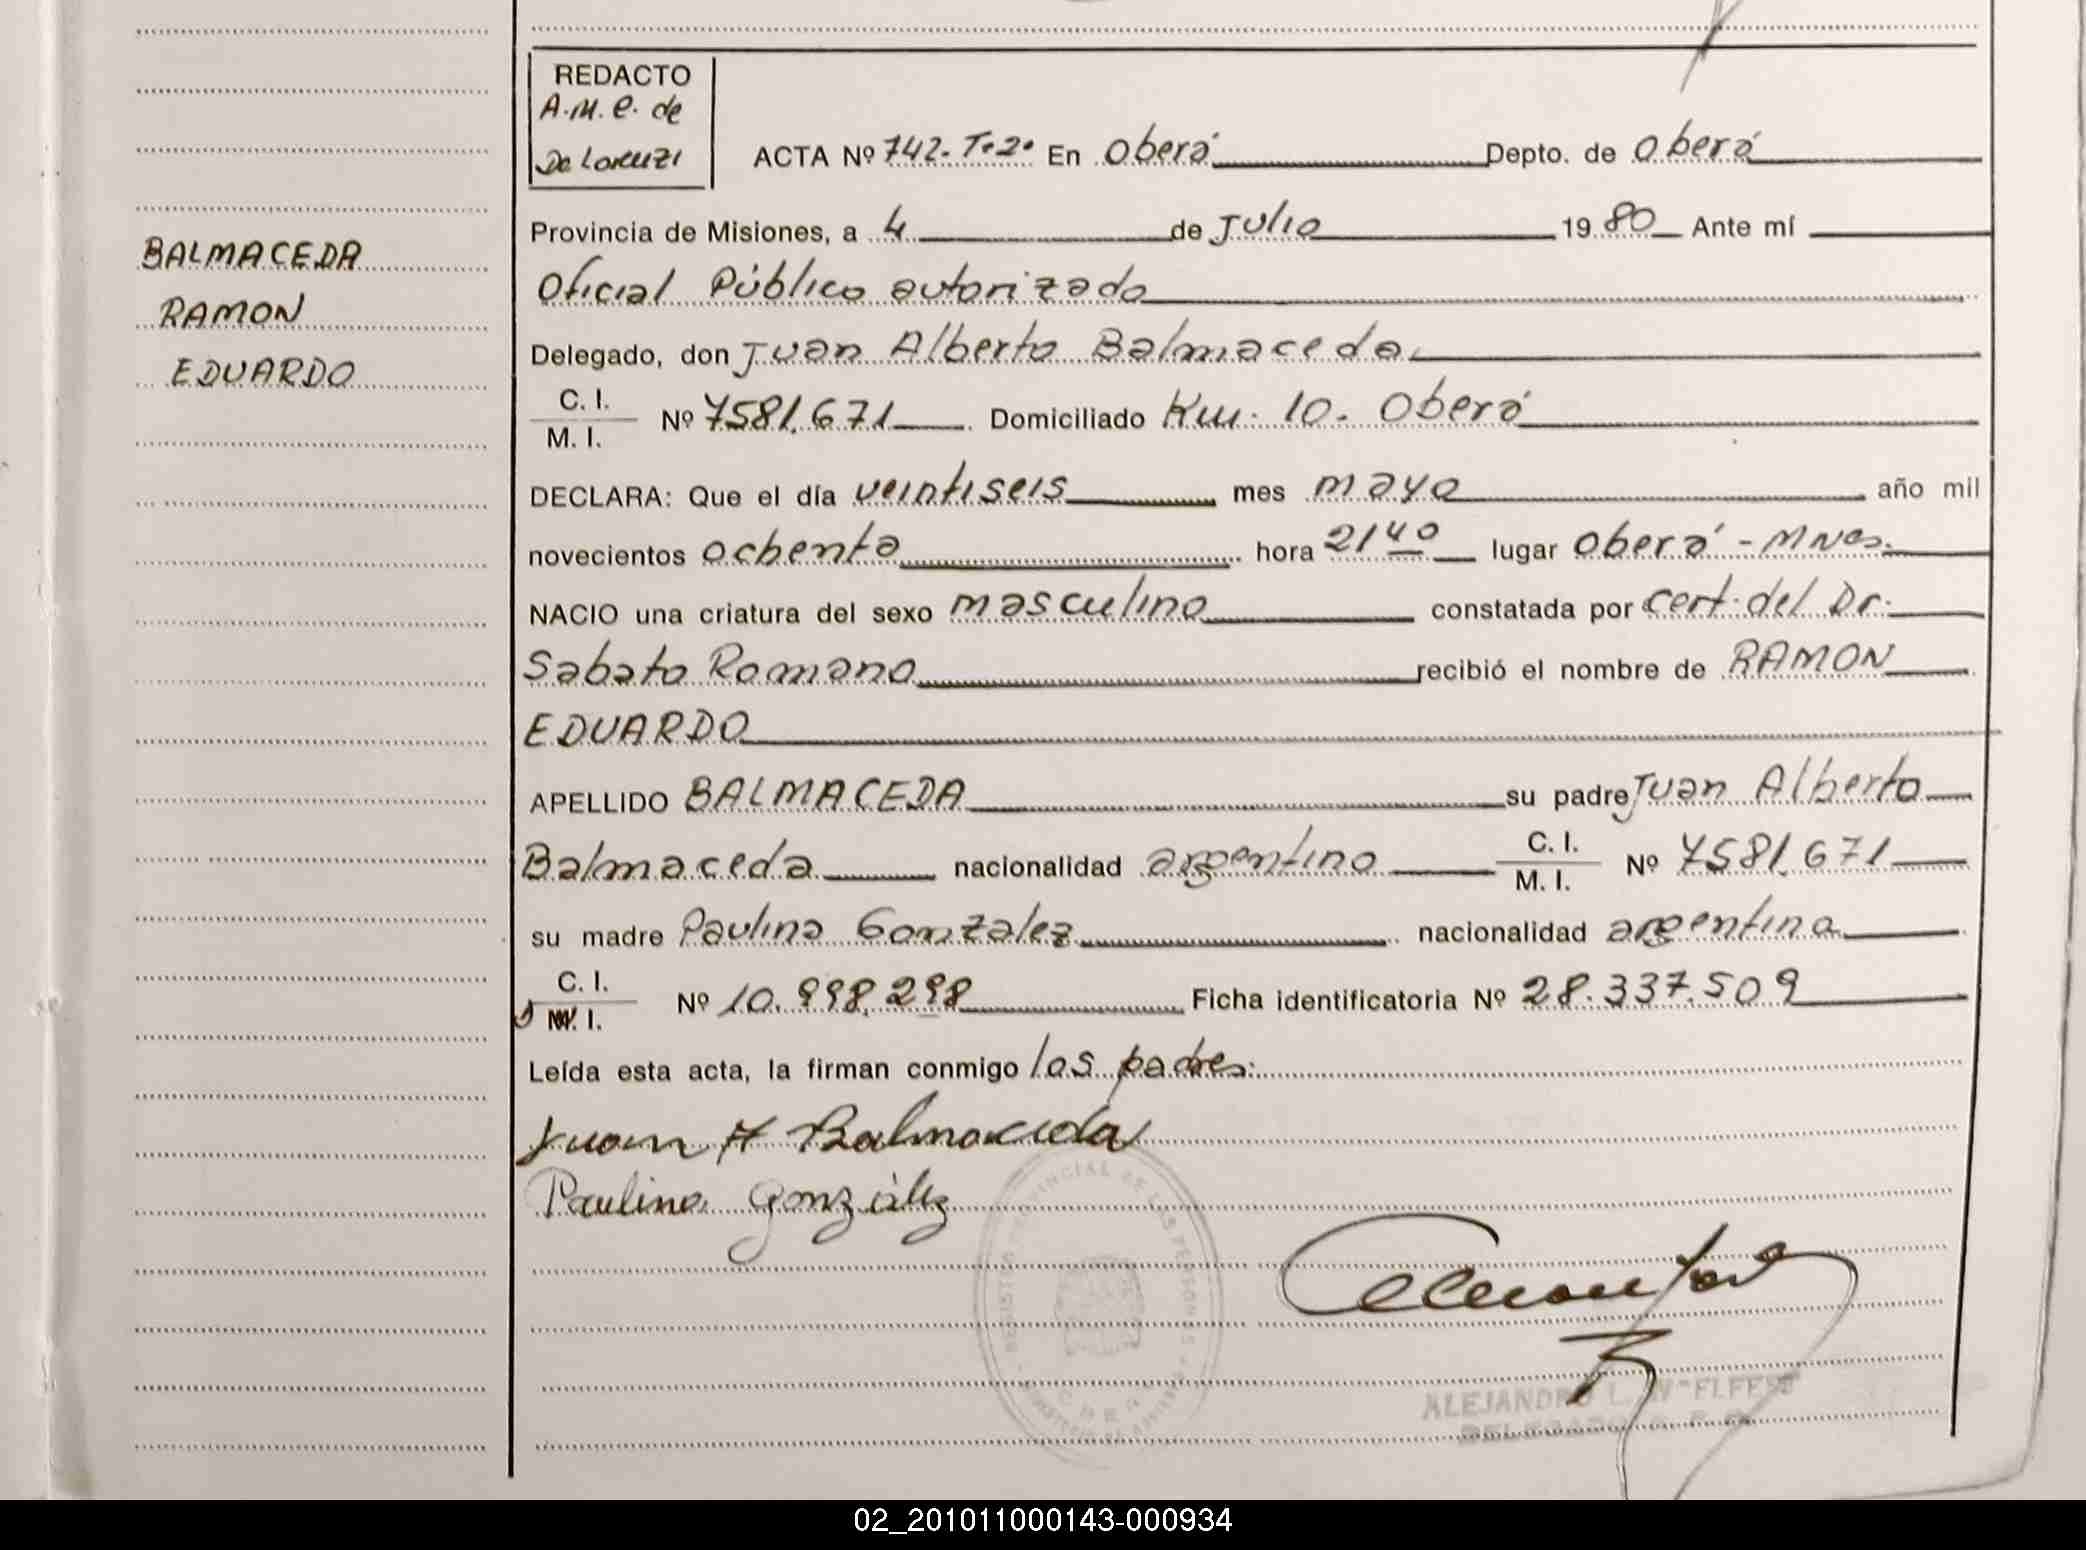 REDACTO
A.M.E. de
De Lorenzi
ACTA Nº 742-Tº2º En Oberá Depto. de Oberá
Provincia de Misiones, a 4 de Julio 1980 Ante mí
Oficial Público autorizado
BALMACEDA
RAMON
EDUARDO
Delegado, don Juan Alberto Balmaceda
C. I.
M. I. Nº 7581.671 Domiciliado Km. 10. Oberá
DECLARA: Que el día veintiseis mes mayo año mil
novecientos ochenta hora 21 40 lugar Oberá - Mnes.
NACIO una criatura del sexo masculino constatada por cert. del Dr.
Sabato Romano recibió el nombre de RAMON
EDUARDO
APELLIDO BALMACEDA su padre Juan Alberto
Balmaceda nacionalidad argentino C. I.
M. I. Nº 7581.671
su madre Paulina Gonzalez nacionalidad argentina
C. I.
M. I. Nº 10.998.298 Ficha identificatoria Nº 28.337.509
Leída esta acta, la firman conmigo los padres:
Juan A Balmaceda
Paulina González
REGISTRO PROVINCIAL DE LAS PERSONAS
OBERA
ALEJANDRO L.
DELEGADO
02_201011000143-000934